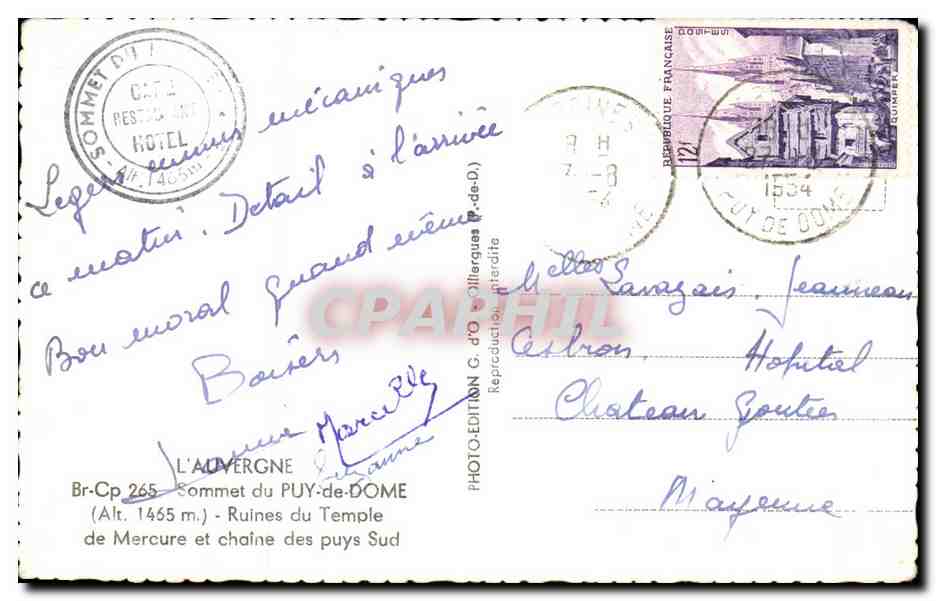 SOMMET DU
CAFE
RESTAURANT
HOTEL
Alt. 1465m
Légers ennuis mécaniques
ce matin. Détail à l'arrivée
Bon moral quand même
Baisers
Marcelle
Suzanne
L'AUVERGNE
Br-Cp 265 - Sommet du PUY-de-DOME
(Alt. 1465 m.) - Ruines du Temple
de Mercure et chaîne des puys Sud
PHOTO-EDITION G. d'O - Olliergues (P.-de-D.)
Reproduction interdite
CPAPHIL
REPUBLIQUE FRANÇAISE
POSTES
12F
QUIMPER
8 H
1954
PUY DE DOME
Melles Lavazais, Jeanneau
Cesbron, Hopital
Chateau Gontier
Mayenne